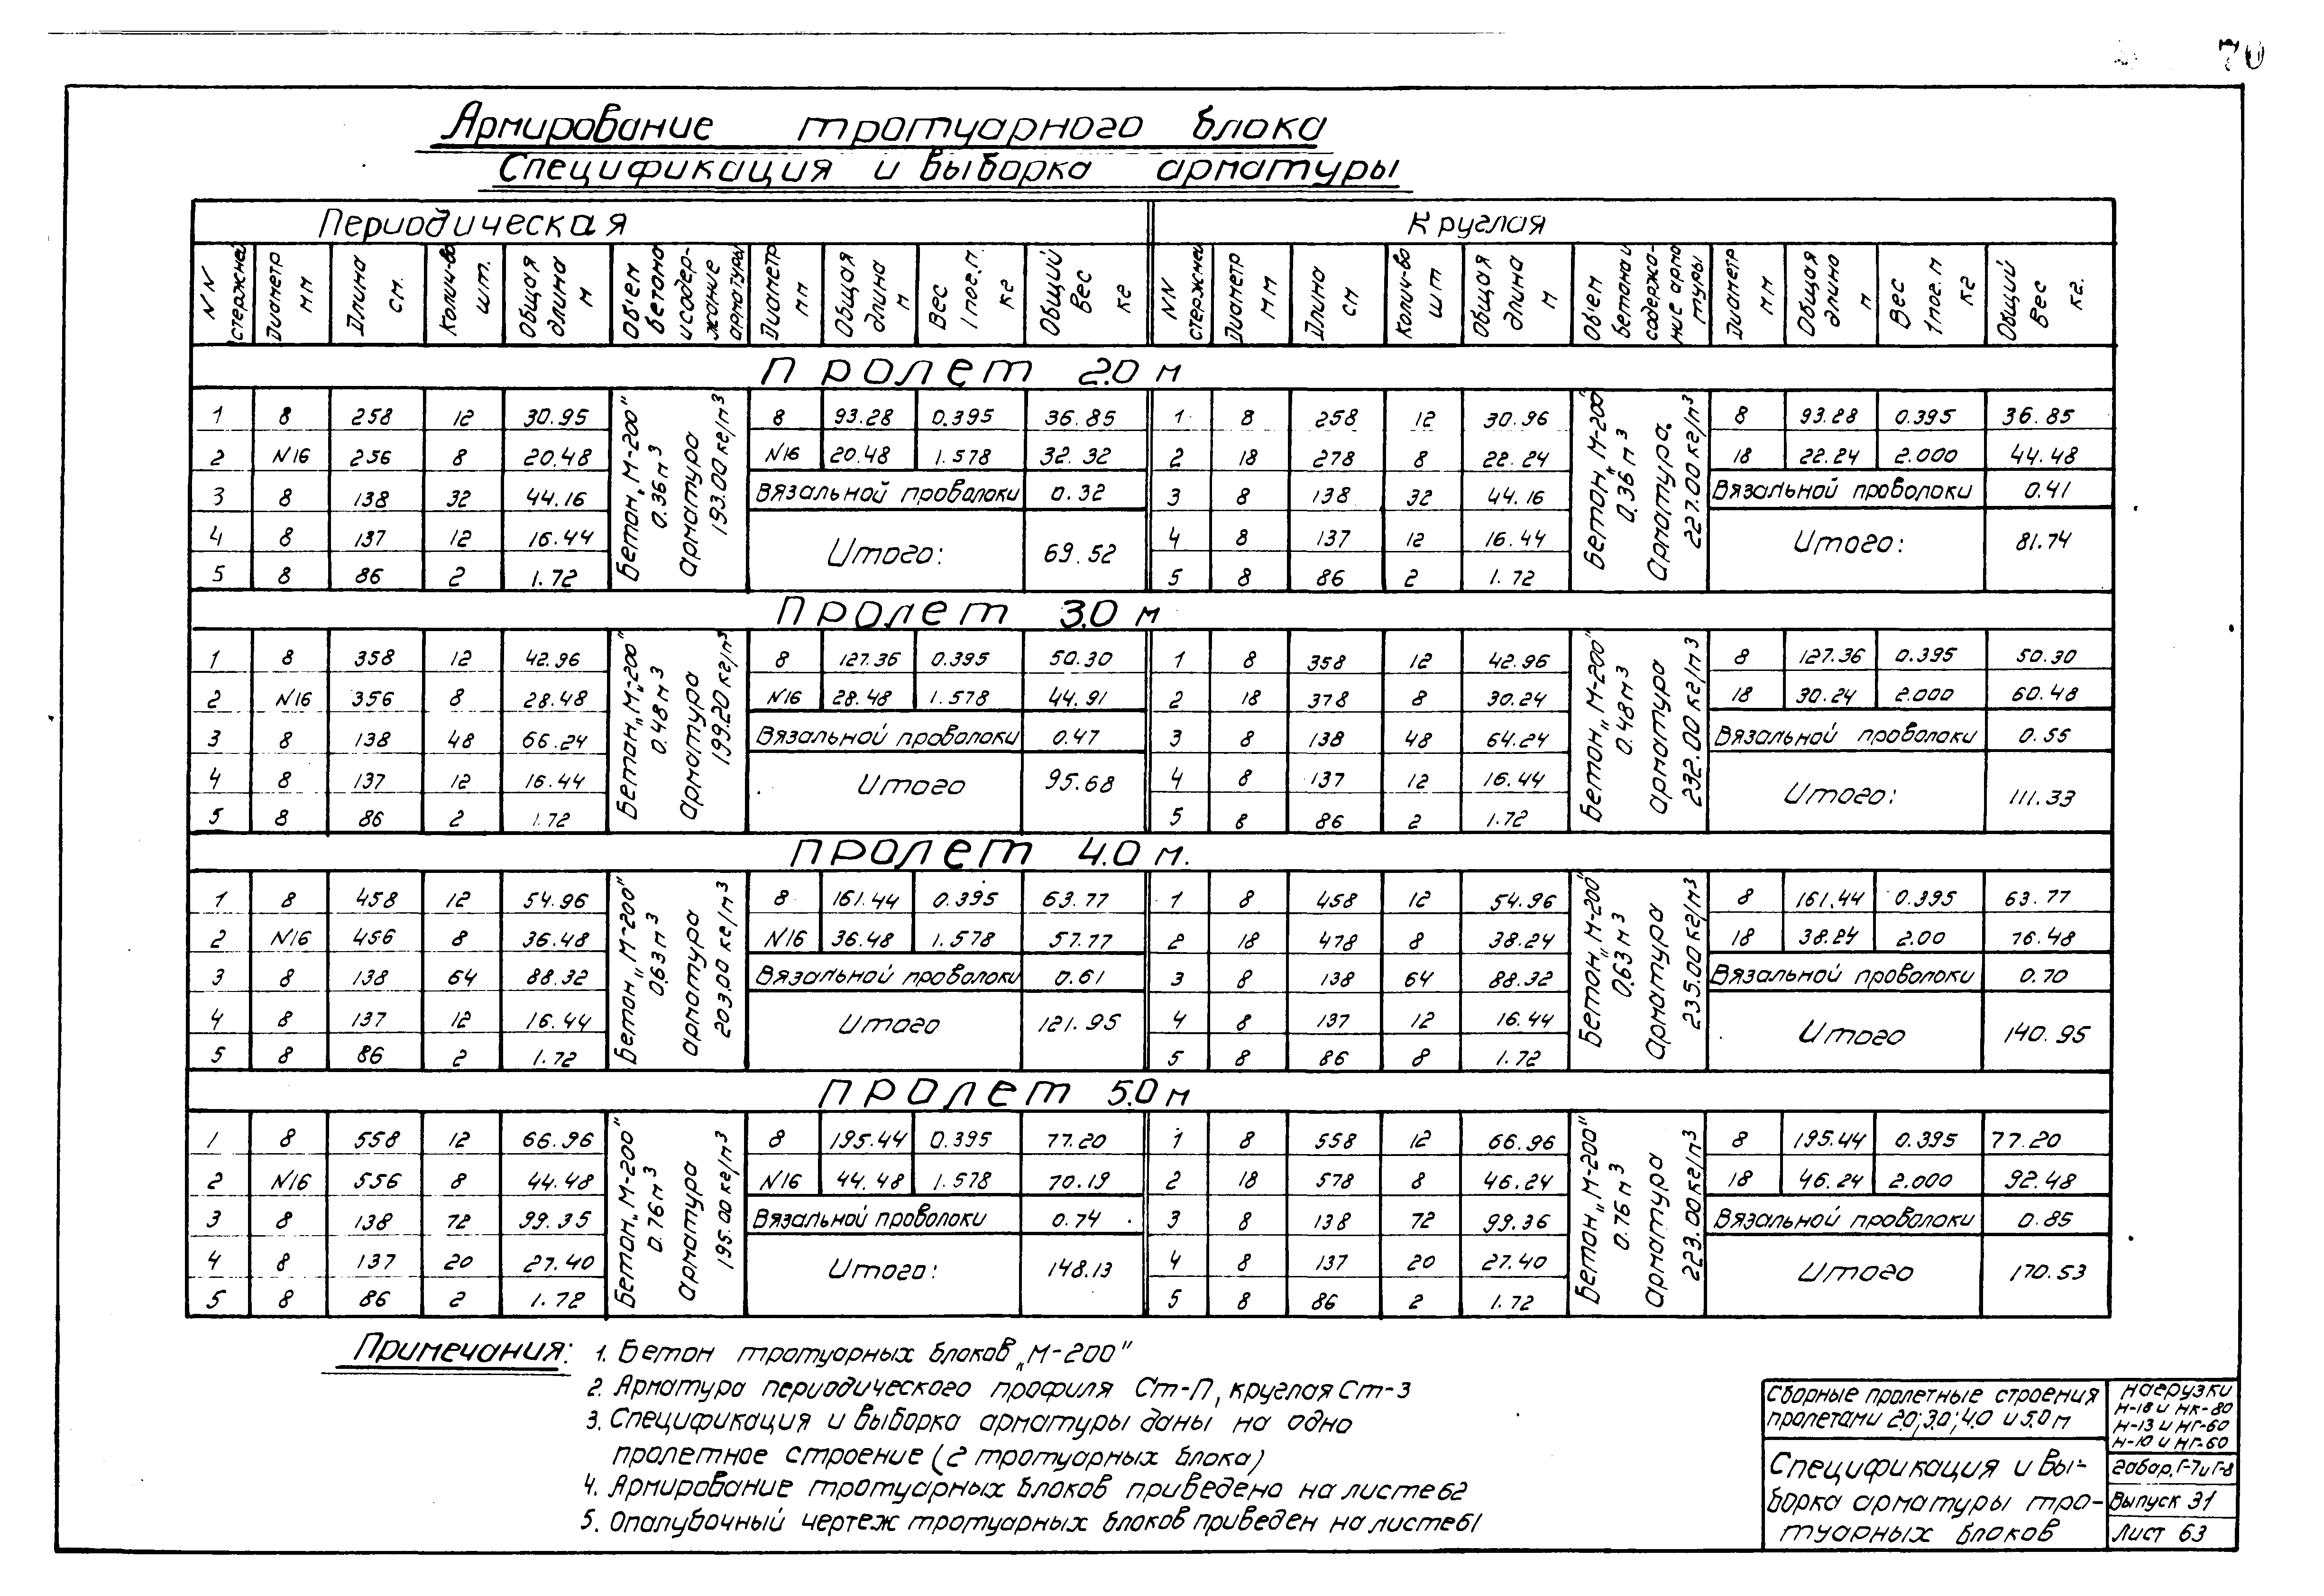 70
Армирование тротуарного блока
Спецификация и выборка арматуры
Периодическая Круглая
NN стержней Диаметр мм Длина см. Колич-во шт. Общая длина м Об'ем бетона и содержание арматуры Диаметр мм Общая длина м Вес 1 пог.м. кг Общий вес кг NN стержней Диаметр мм Длина см Колич-во шт Общая длина м Об'ем бетона и содержание арматуры Диаметр мм Общая длина м Вес 1 пог. м кг Общий вес кг.
Пролет 2.0 м
1 8 258 12 30.95 Бетон „М-200" 0.36 м³ Арматура 193.00 кг/м³ 8 93.28 0.395 36.85 1 8 258 12 30.96 Бетон „М-200" 0.36 м³ Арматура. 227.00 кг/м³ 8 93.28 0.395 36.85
2 N16 256 8 20.48 N16 20.48 1.578 32.32 2 18 278 8 22.24 18 22.24 2.000 44.48
3 8 138 32 44.16 Вязальной проволоки 0.32 3 8 138 32 44.16 Вязальной проволоки 0.41
4 8 137 12 16.44 Итого: 69.52 4 8 137 12 16.44 Итого: 81.74
5 8 86 2 1.72 5 8 86 2 1.72
Пролет 3.0 м
1 8 358 12 42.96 Бетон „М-200" 0.48 м³ Арматура 199.20 кг/м³ 8 127.36 0.395 50.30 1 8 358 12 42.96 Бетон „М-200" 0.48 м³ Арматура 232.00 кг/м³ 8 127.36 0.395 50.30
2 N16 356 8 28.48 N16 28.48 1.578 44.91 2 18 378 8 30.24 18 30.24 2.000 60.48
3 8 138 48 66.24 Вязальной проволоки 0.47 3 8 138 48 64.24 Вязальной проволоки 0.55
4 8 137 12 16.44 Итого 95.68 4 8 137 12 16.44 Итого: 111.33
5 8 86 2 1.72 5 8 86 2 1.72
Пролет 4.0 м.
1 8 458 12 54.96 Бетон „М-200" 0.63 м³ Арматура 203.00 кг/м³ 8 161.44 0.395 63.77 1 8 458 12 54.96 Бетон „М-200" 0.63 м³ Арматура 235.00 кг/м³ 8 161.44 0.395 63.77
2 N16 456 8 36.48 N16 36.48 1.578 57.77 2 18 478 8 38.24 18 38.24 2.00 76.48
3 8 138 64 88.32 Вязальной проволоки 0.61 3 8 138 64 88.32 Вязальной проволоки 0.70
4 8 137 12 16.44 Итого 121.95 4 8 137 12 16.44 Итого 140.95
5 8 86 2 1.72 5 8 86 8 1.72
Пролет 5.0 м
1 8 558 12 66.96 Бетон „М-200" 0.76 м³ Арматура 195.00 кг/м³ 8 195.44 0.395 77.20 1 8 558 12 66.96 Бетон „М-200" 0.76 м³ Арматура 223.00 кг/м³ 8 195.44 0.395 77.20
2 N16 556 8 44.48 N16 44.48 1.578 70.19 2 18 578 8 46.24 18 46.24 2.000 92.48
3 8 138 72 99.35 Вязальной проволоки 0.74 3 8 138 72 99.36 Вязальной проволоки 0.85
4 8 137 20 27.40 Итого: 148.13 4 8 137 20 27.40 Итого 170.53
5 8 86 2 1.72 5 8 86 2 1.72
Примечания: 1. Бетон тротуарных блоков „М-200"
2. Арматура периодического профиля Ст-П, круглая Ст-3
3. Спецификация и выборка арматуры даны на одно
пролетное строение (2 тротуарных блока)
4. Армирование тротуарных блоков приведено на листе 62
5. Опалубочный чертеж тротуарных блоков приведен на листе 61
Сборные пролетные строения
пролетами 2.0; 3.0; 4.0 и 5.0 м
Нагрузки
Н-18 и НК-80
Н-13 и НГ-60
Н-10 и НГ-60
Спецификация и вы-
борка арматуры тро-
туарных блоков
габар. Г-7 и Г-8
Выпуск 31
Лист 63